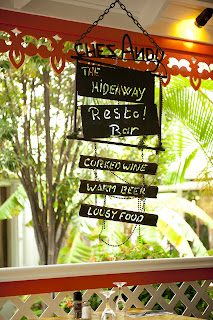 CHEZ ANDY
THE
HIDEAWAY
Resto!
Bar
CORKED WINE
WARM BEER
LOUSY FOOD